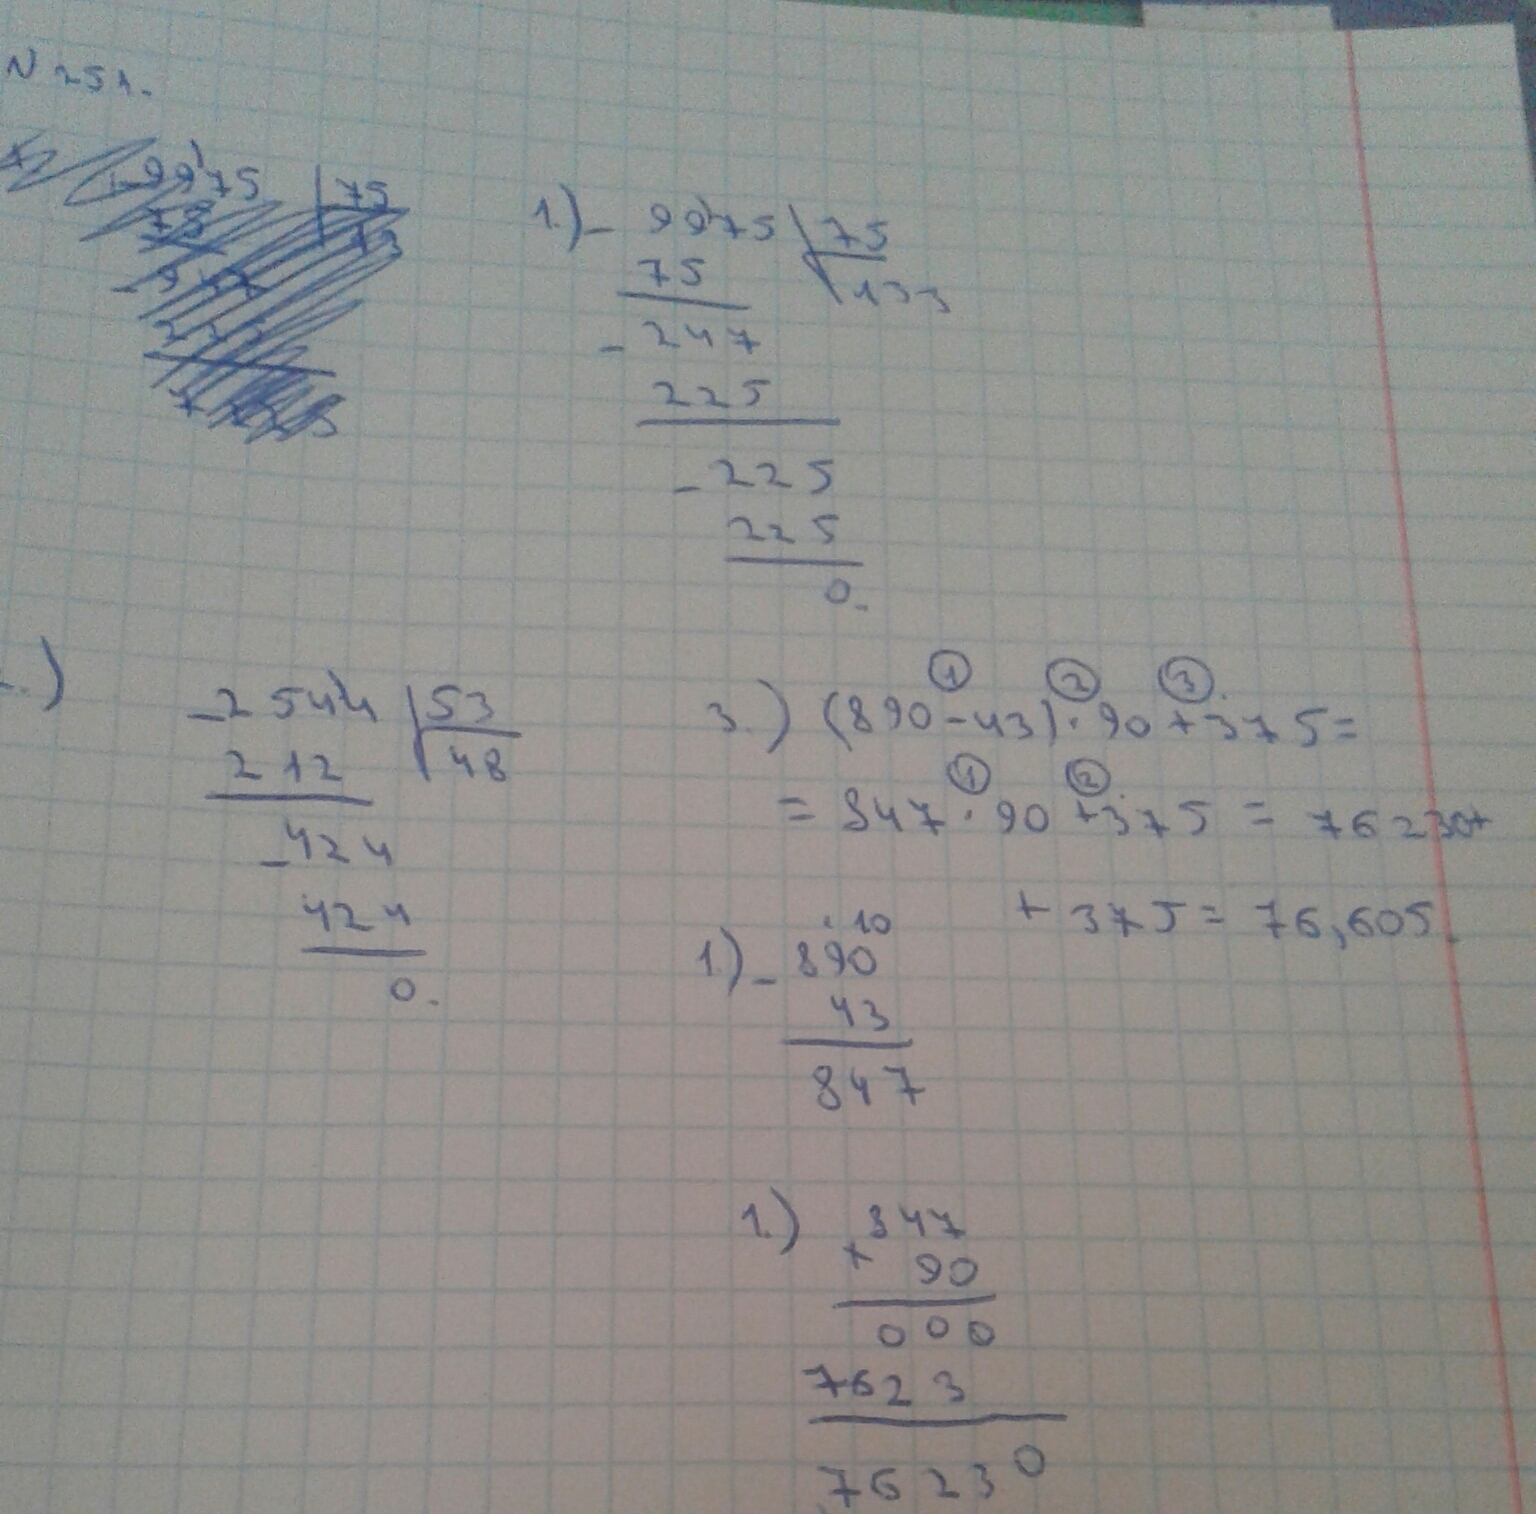 N 251.
1.) - 9975 | 75
75 | 133
- 247
225
- 225
225
0.
.) - 2544 | 53
212 | 48
- 424
424
0.
3.) (890 - 43) · 90 + 375 =
① ② ③
= 847 · 90 + 375 = 76230+
① ②
+ 375 = 76,605.
· 10
1.) - 890
43
847
1.) × 847
90
000
7623
76230